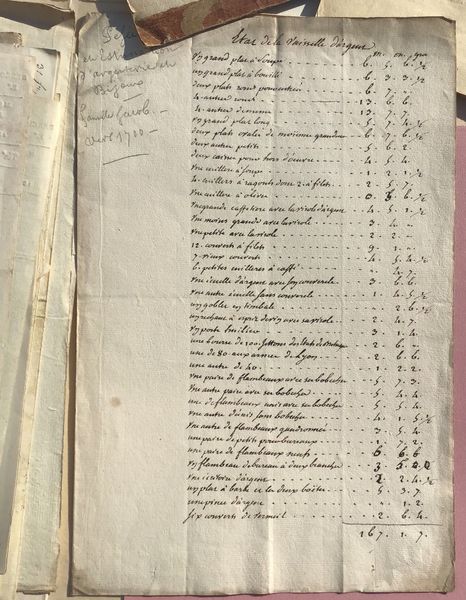 Pesée
et Estimation
d'argenterie et
Bijoux
famille Jacob
vers 1700
Etat de la Vaisselle d'argent
m. on. gro
un grand plat a Soupe 6. 5. 6. ½
un grand plat a bouilli 6. 3. 3. ½
deux plats rond pour entree 6. 7. "
4 autres ronds 13. 6. 6.
4 autres de meme 13. 7. 7.
un grand plat long 5. 7. 2. ½
deux plats ovales de moienne grandeur 6. 7. 6. ½
deux autres petits 5. 6. 2.
deux carrés pour hors d'œuvre 4. 5. 4.
une cuillere a soupe 1. 2. 1. ½
4 cuillers a ragouts dont 2 a filets 2. 5. 7.
une cuillere a olive 0. 5. 6. ½
une grande caffetiere avec la virole d'argent 4. 5. 1. ½
une moins grande avec la virole 3. 4. "
une petite avec la virole 2. 2. "
12 couverts a filets 9. 1. "
7 vieux couverts 4. 5. 4. ½
6 petites cuilleres a caffé " 4. 7.
une ecuelle d'argent avec son couvercle 3. 6. 6.
une autre ecuelle sans couvercle 1. 4. 5. ½
un goblet en timbale " 2. 6. ½
un rechaut a esprit de vin avec sa virole 2. 4. 7.
un porte huilier 3. 1. 4.
une bourse de 100 jettons des Etats de Bretagne 2. 6. "
une de 80 aux armes de Lyon 2. 6. 6.
une autre de 40 1. 2. 2.
une paire de flambeaux avec ses bobeches 5. 7. 3.
une autre paire avec ses bobeches 5. 4. 4.
une de flambeaux unis avec ses bobeches 5. 5. 4.
une autre d'unis sans bobeches 4. 1. 5. ½
une autre de flambeaux gaudronnés 3. 5. 4.
une paire de petits pour bureaux 1. 7. 2.
une paire de flambeaux neufs 6. 6. 6
un flambeau de bureau a deux branches 3. 5.
une ecritoire d'argent 2. 2. 4. ½
un plat a barbe et les deux boëtes 5. 3. 7.
une pince d'argent " 1. 2.
six couverts de vermeil 2. 6. 4.
167. 1. 7.